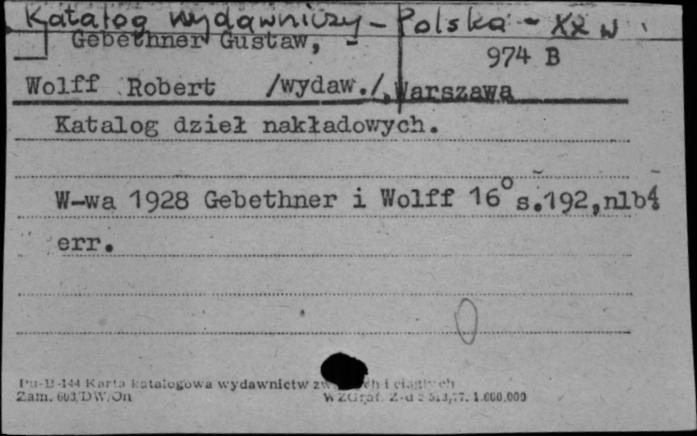 Katalog wydawniczy - Polska - XX w.
Gebethner Gustaw, -
974 B
Wolff Robert /wydaw./, Warszawa
Katalog dzieł nakładowych.
W-wa 1928 Gebethner i Wolff 16° s.192,nlb4
err.
Pu-B-144 Karta katalogowa wydawnictw i ciągłych
Zam. 603/DW/On WZGraf. Z-d 1.600,000